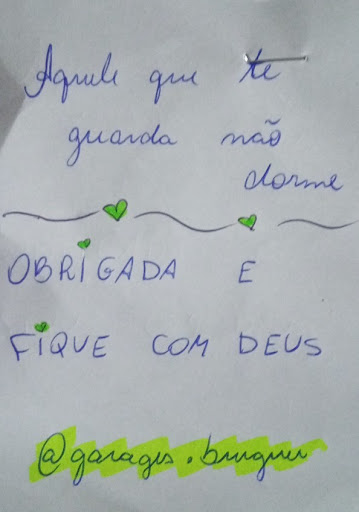 Aquele que te
guarda não
dorme
OBRIGADA E
FIQUE COM DEUS